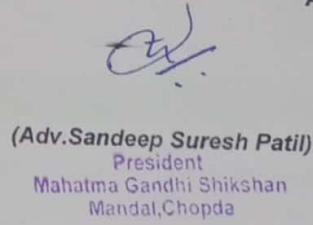 (Adv.Sandeep Suresh Patil)
President
Mahatma Gandhi Shikshan
Mandal,Chopda